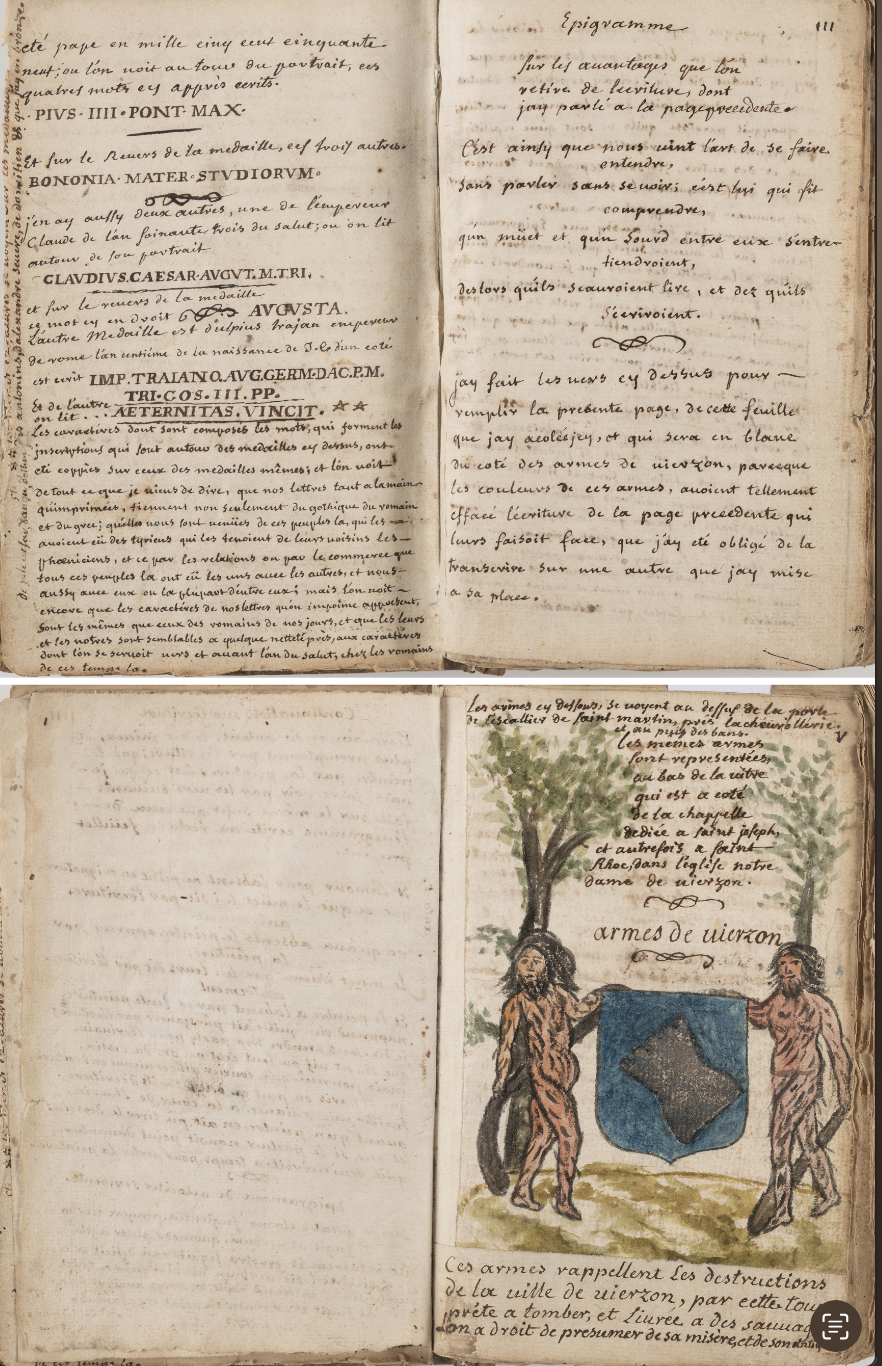 eté pape en mille cinq cent cinquante
neuf; ou lón uoit au tour du portrait, ces
quatres mots cy apprés ecrits.
PIVS · IIII · PONT · MAX ·
Et sur le Reuers de la medaille, ces trois autres.
BONONIA · MATER · STVDIORVM ·
j'en ay aussy deux autres, une de lémpereur
Claude de lán soinante trois du salut; ou on lit
autour de son portrait
CLAVDIVS.CAESAR.AVGVT.M.TRI.
et sur le reuers de la medaille
ce mot cy en droit AVGVSTA.
Láutre Medaille est dúlpius trajan empereur
de rome lán centiéme de la naissance de J.C. dún coté
est ecrit IMP.TRAIANO.AVG.GERM.DAC.P.M.
TRI.COS.III.PP.
Et de láutre
on lit .. AETERNITAS.VINCIT.
Les caractéres dont sont composés les mots, qui forment les
inscriptions qui sont autour des medailles cy dessus, ont
eté coppiés sur ceux des medailles mêmes; et lón uoit
de tout ce que je uiens de dire, que nos lettres tant a la main
qúimprimées, tiennent non seulement du gothique du romain
et du grec; quélles nous sont uenües de ces peuples la, qui les
auoient eü des tyriens qui les tenoient de leurs uoisins les
phœniciens, et ce par les relations ou par le commerce que
tous ces peuples la ont eü les uns auec les autres, et nous
aussy auec eux ou la plupart déntre eux; mais lón uoit
encore que les caractéres de nos lettres quón imprime appresent,
sont les mêmes que ceux des romains de nos jours, et que les leurs
et les notres sont semblables a quelque netteté prés, aux caractéres
dont lón se seruoit uers et auant lán du salut, chez les romains
de ces temps la.
Epigramme
111
sur les auantages que lón
retire de lécriture, dont
jay parlé a la page precedente.
Cést ainsy que nous uint lárt de se faire
entendre,
sans parler sans se uoir; cést luy qui fit
comprendre,
qún müet et qún Sourd entre eux séntre-
tiendroient,
des lors quíls scauroient lire, et dez quíls
sécriroient.
jay fait les uers cy dessus pour
remplir la presente page, de cette feuille
que jay acolée jcy, et qui sera en blanc
du coté des armes de uierzon, parceque
les couleurs de ces armes, auoient tellement
effacé lécriture de la page precedente qui
leurs faisoit face, que jáy eté obligé de la
transcrire sur une autre que jay mise
a sa place.
Les armes cy dessous, se uoyent au dessus de la porte
de léscallier de saint martin, prés la cheurollérie.
et, au puis des bans.
V
les mémes armes
sont representées,
au bas de la uitre
qui est a coté
de la chappelle
dediée a saint joseph,
et autrefois a saint
Rhoc, dans léglise notre
dame de uierzon.
armes de uierzon
Ces armes rappellent Les destructions
de la uille de uierzon, par cette tour
préte a tomber, et Liurée a des sauuag
ón a droit de presumer de sa misére, et de son